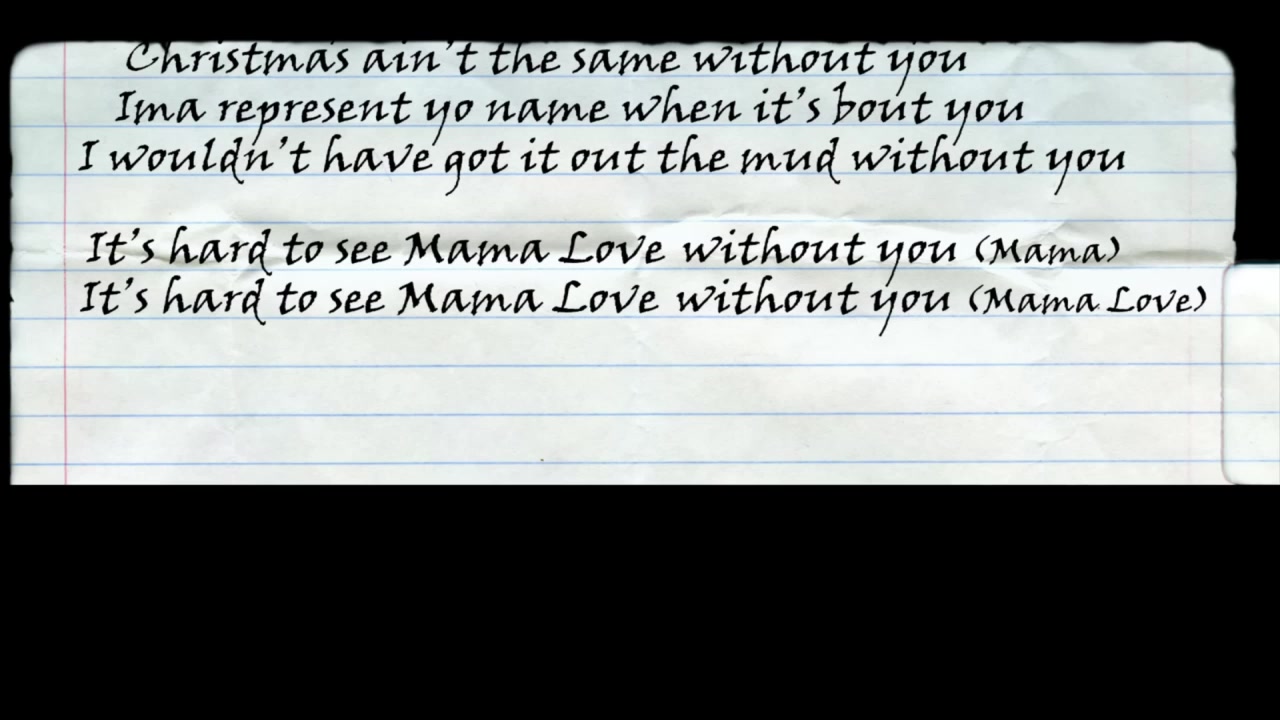 Christmas ain't the same without you
Ima represent yo name when it's bout you
I wouldn't have got it out the mud without you
It's hard to see Mama Love without you (Mama)
It's hard to see Mama Love without you (Mama Love)